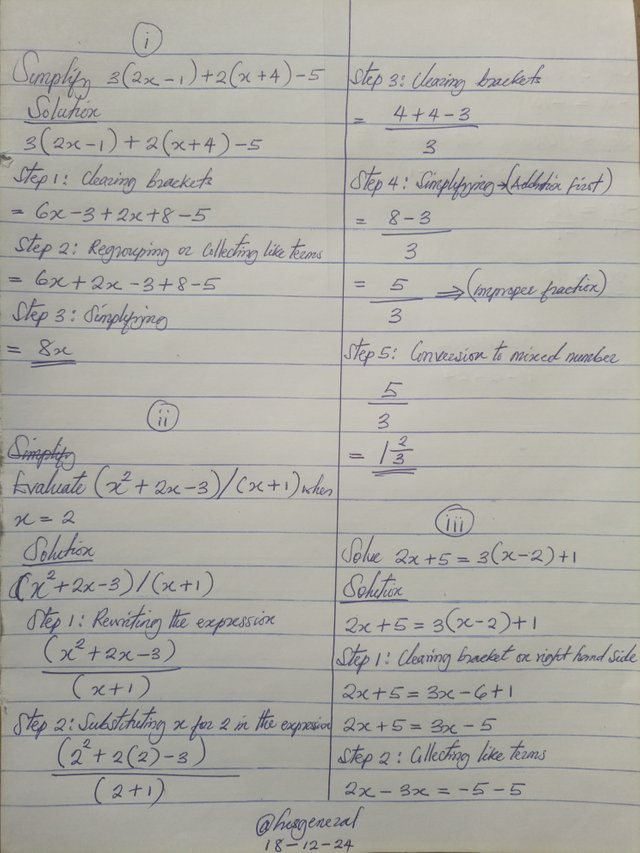 i
Simplify 3(2x-1)+2(x+4)-5
Solution
3(2x-1)+2(x+4)-5
Step 1: Clearing brackets
= 6x-3+2x+8-5
Step 2: Regrouping or Collecting like terms
= 6x+2x-3+8-5
Step 3: Simplifying
= 8x
ii
Simplify
Evaluate (x²+2x-3)/(x+1) when
x = 2
Solution
(x²+2x-3)/(x+1)
Step 1: Rewriting the expression
(x²+2x-3)
(x+1)
Step 2: Substituting x for 2 in the expression
(2²+2(2)-3)
(2+1)
Step 3: Clearing brackets
= 4+4-3
3
Step 4: Simplifying → (Addition first)
= 8-3
3
= 5 ⇒ (improper fraction)
3
Step 5: Conversion to mixed number
5
3
= 1 2/3
iii
Solve 2x+5=3(x-2)+1
Solution
2x+5=3(x-2)+1
Step 1: Clearing bracket on right hand side
2x+5=3x-6+1
2x+5=3x-5
Step 2: Collecting like terms
2x-3x=-5-5
@husgeneral
18-12-24